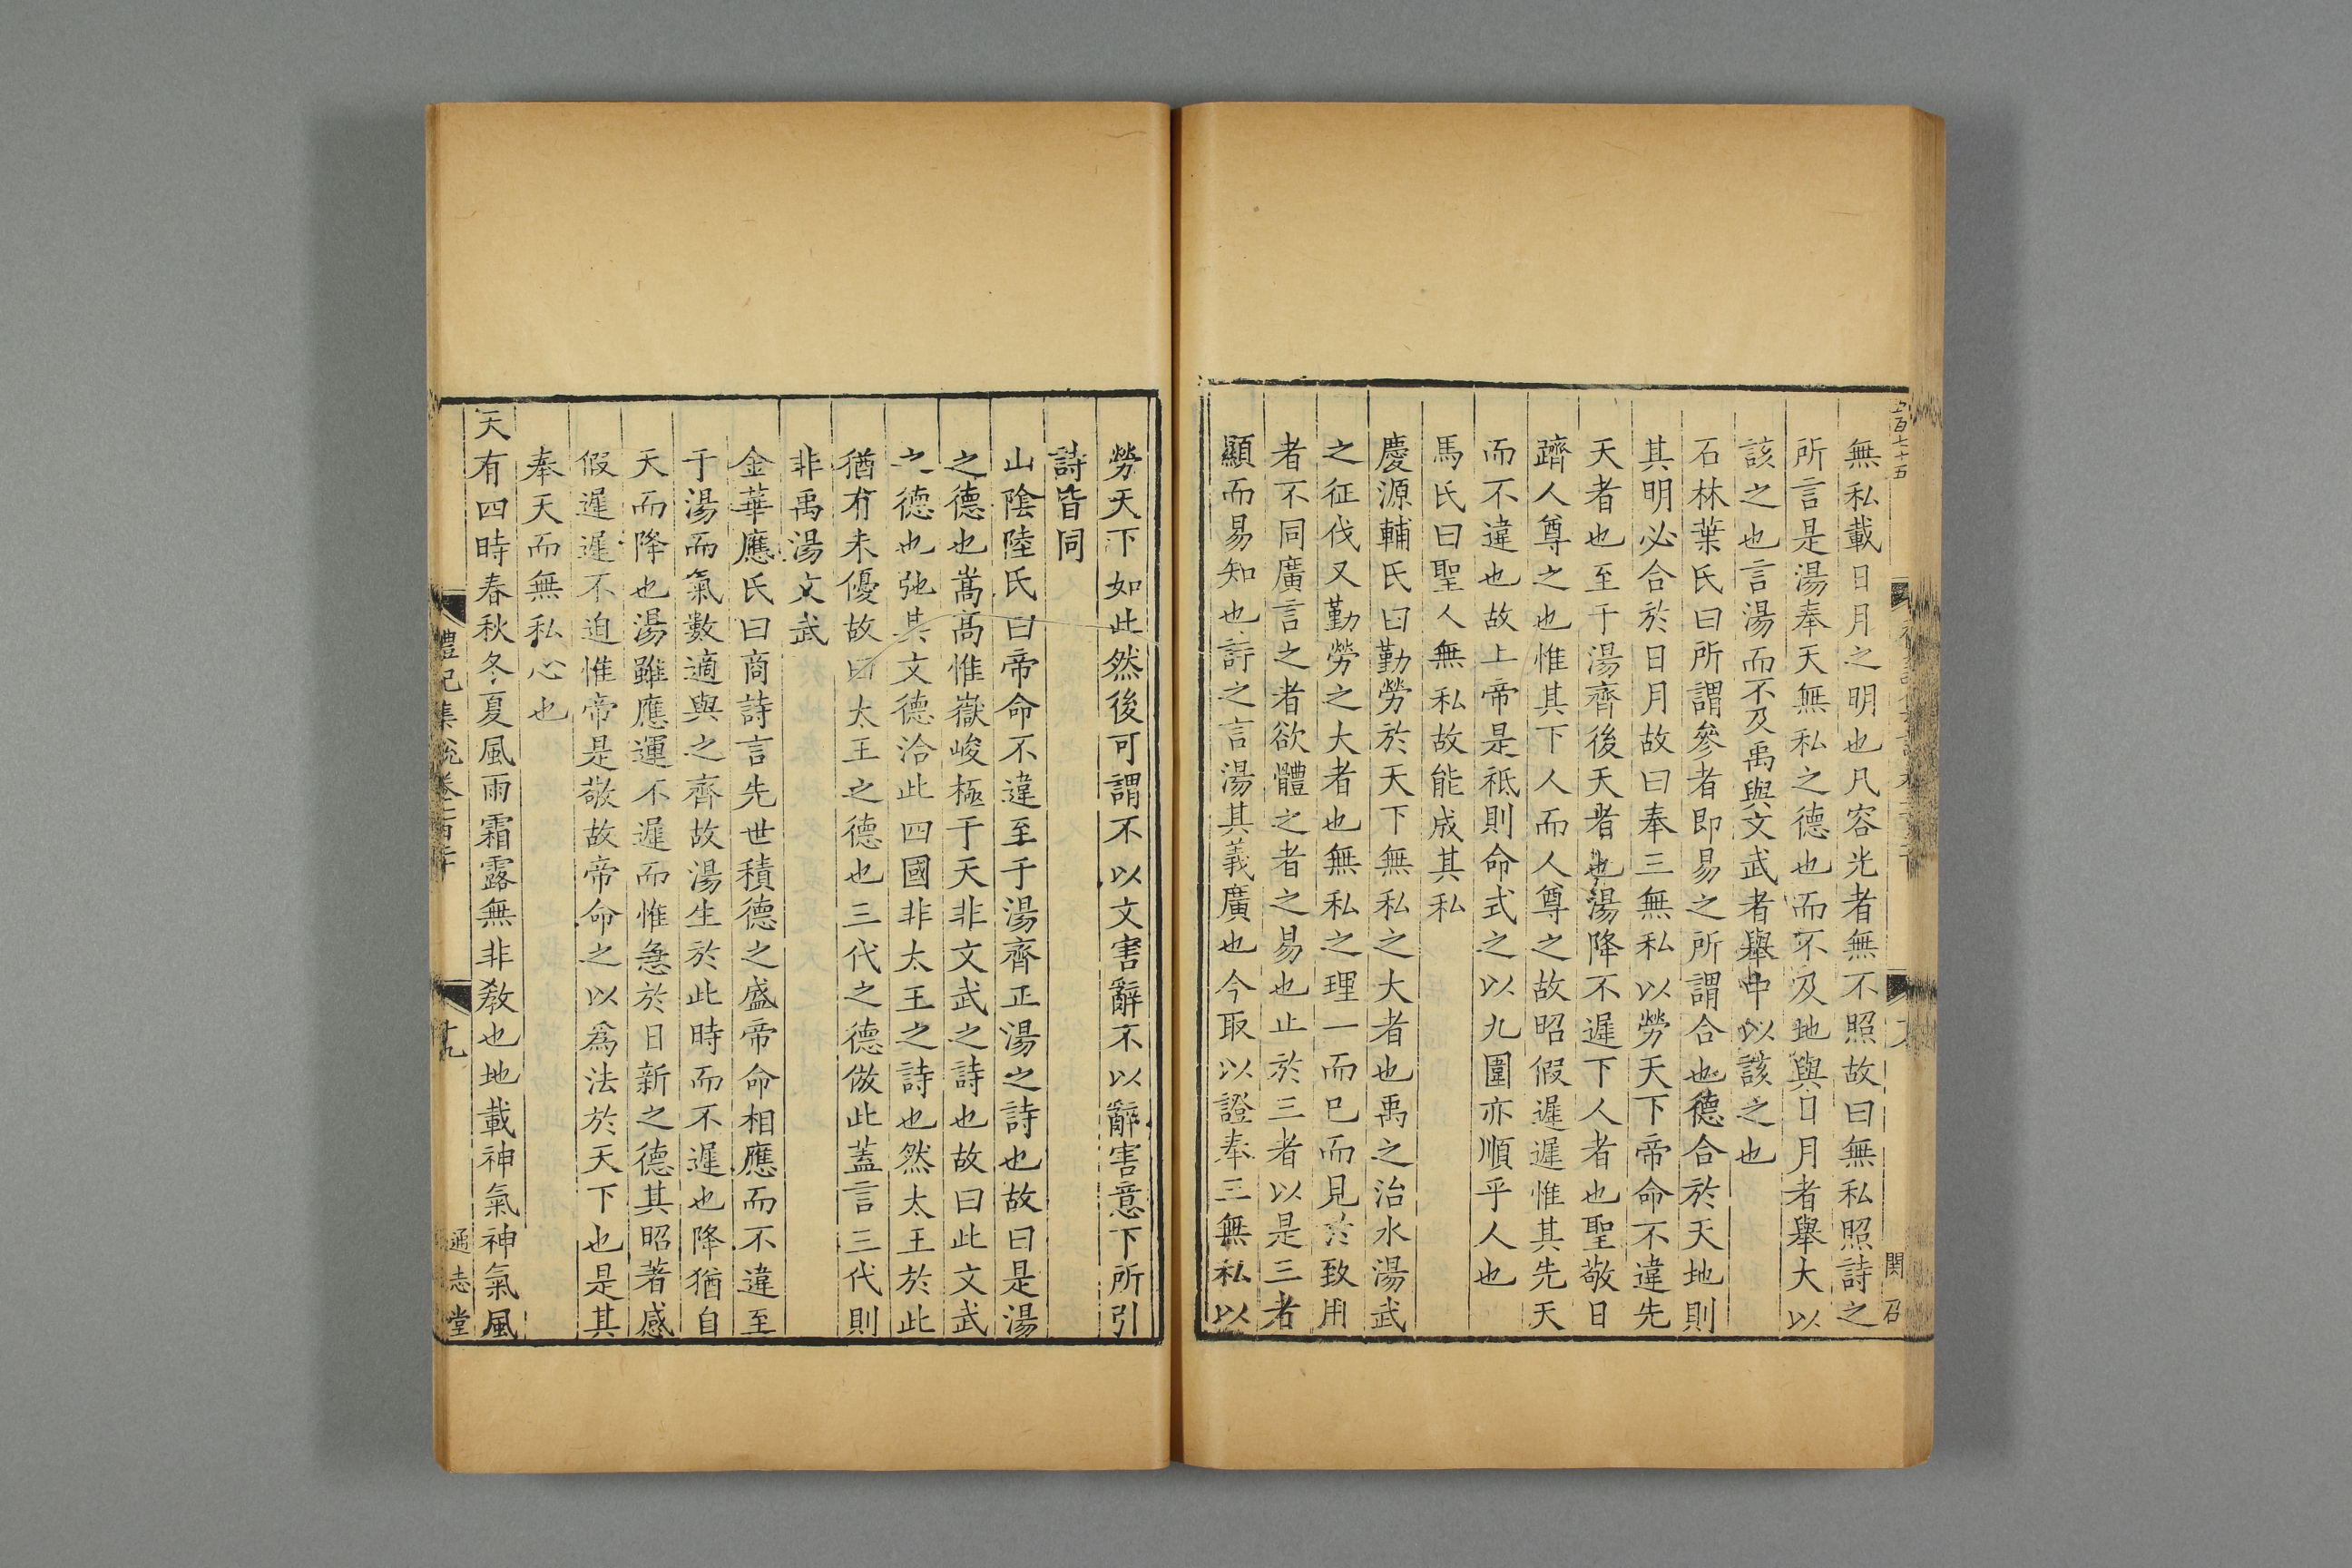 無私載日月之明也凡容光者無不照故曰無私照詩之
所言是湯奉天無私之德也而不及地與日月者舉大以
該之也言湯而不及禹與文武者舉中以該之也
石林葉氏曰所謂參者即易之所謂合也德合於天地則
其明必合於日月故曰奉三無私以勞天下帝命不違先
天者也至于湯齊後天者也湯降不遲下人者也聖敬日
躋人尊之也惟其下人而人尊之故昭假遲遲惟其先天
而不違也故上帝是祗則命式之以九圍亦順乎人也
馬氏曰聖人無私故能成其私
慶源輔氏曰勤勞於天下無私之大者也禹之治水湯武
之征伐又勤勞之大者也無私之理一而已而見於致用
者不同廣言之者欲體之者之易也止於三者以是三者
顯而易知也詩之言湯其義廣也今取以證奉三無私以
勞天下如此然後可謂不以文害辭不以辭害意下所引
詩皆同
山陰陸氏曰帝命不違至于湯齊正湯之詩也故曰是湯
之德也嵩高惟嶽峻極于天非文武之詩也故曰此文武
之德也弛其文德洽此四國非太王之詩也然太王於此
猶有未優故曰太王之德也三代之德倣此蓋言三代則
非禹湯文武
金華應氏曰商詩言先世積德之盛帝命相應而不違至
于湯而氣數適與之齊故湯生於此時而不遲也降猶自
天而降也湯雖應運不遲而惟急於日新之德其昭著感
假遲遲不迫惟帝是敬故帝命之以爲法於天下也是其
奉天而無私心也
天有四時春秋冬夏風雨霜露無非敎也地載神氣神氣風
禮記集說卷一百二十
十九
通志堂